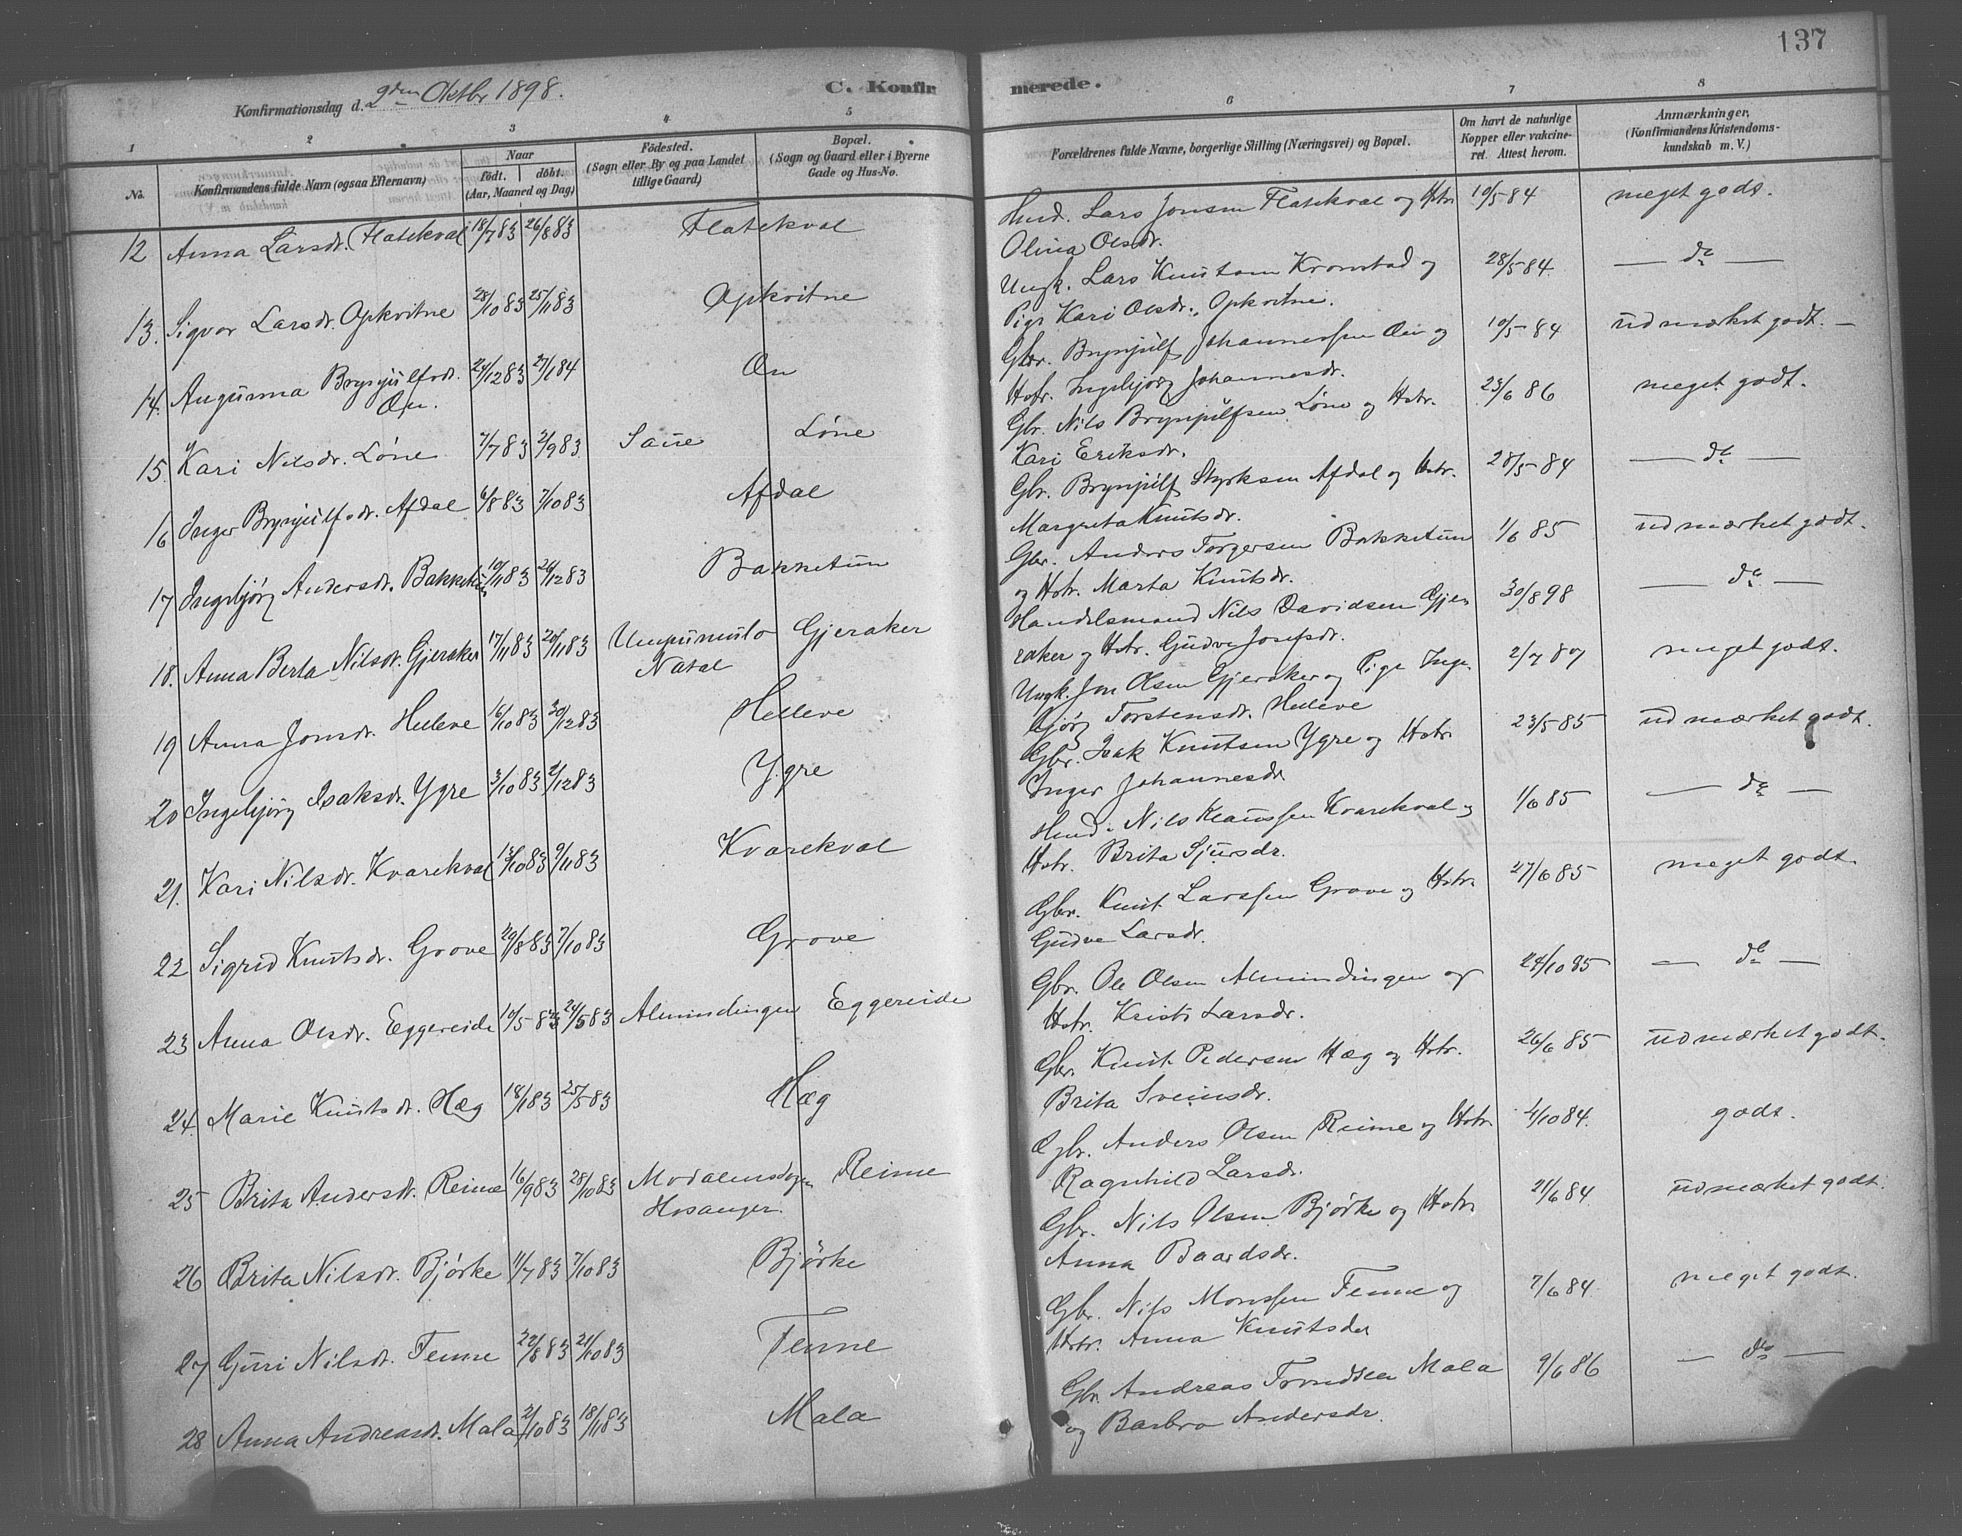 137
Konfirmationsdag d. 9den Oktbr 1898.
C. Konfirmerede.
1 2 3 4 5 6 7 8
No. Konfirmandens fulde Navn (ogsaa Efternavn) Naar født. døbt. (Aar, Maaned og Dag) Fødested. (Sogn eller By og paa Landet tillige Gaard) Bopæl. (Sogn og Gaard eller i Byerne Gade og Hus-No. Forældrenes fulde Navne, borgerlige Stilling (Næringsvei) og Bopæl. Om havt de naturlige Kopper eller vakcineret. Attest herom. Anmærkninger, (Konfirmandens Kristendomskundskab m. V.)
12 Anna Larsdr. Flatekval 18/7 83 26/8 83 Flatekval Husd. Lars Jonsen Flatekval og Hstr. 10/5 84 meget godt.
Olina Olsdr.
13. Sigvor Larsdr. Opkvitne 28/10 83 25/11 83 Opkvitne Ungk. Lars Knutsen Kronstad og 28/5 84 do
Pige Kari Olsdr., Opkvitne.
14. Angunna Brynjulfsdr. Øen. 24/12 83 27/1 84 Øen Gbr. Brynjulf Johannessen Øen og 10/5 84 udmærket godt.
Hstr. Ingebjörg Johannesdr.
15. Kari Nilsdr. Löne 7/7 83 2/9 83 Saue Löne Gbr. Nils Brynjulfsen Löne og Hstr. 23/6 86 meget godt.
Kari Eriksdr.
16 Inger Brynjulfsdr. Afdal 6/8 83 7/10 83 Afdal Gbr. Brynjulf Styrksen Afdal og Hstr. 28/5 84 do
Margreta Knutsdr.
17 Ingebjörg Andersdr. Bakketun 10/11 83 26/12 83 Bakketun Gbr. Anders Torgersen Bakketun 1/6 85 udmærket godt.
og Hstr. Marta Knutsdr.
18. Anna Berta Nilsdr. Gjeraker 17/11 83 20/11 83 Umpumulo Natal Gjeraker Handelsmand Nils Davidsen Gje- 30/8 98 do
raker og Hstr. Gudve Josefsdr.
19 Anna Jonsdr. Helleve 16/10 83 30/12 83 Helleve Ungk. Jon Olsen Gjeraker og Pige Inge- 2/7 87 meget godt.
björg Torstensdr. Helleve
20 Ingebjörg Isaksdr. Ygre 3/10 83 2/12 83 Ygre Gbr. Isak Knutsen Ygre og Hstr. 23/5 85 udmærket godt.
Inger Johannesdr
21. Kari Nilsdr. Kvarekval 13/10 83 9/11 83 Kvarekval Husd. Nils Klaussen Kvarekval og 1/6 85 do
Hstr. Brita Sjursdr.
22 Sigrid Knutsdr. Grove 29/8 83 7/10 83 Grove Gbr. Knut Larssen Grove og Hstr. 27/6 85 meget godt.
Gudve Larsdr.
23 Anna Olsdr. Eggereide 10/5 83 24/5 83 Almindingen Eggereide Gbr. Ole Olsen Almindingen og 24/10 85 do
Hstr. Kristi Larsdr.
24. Marie Knutsdr. Hæg 18/1 83 25/5 83 Hæg Gbr. Knut Pedersen Hæg og Hstr. 26/6 85 udmærket godt.
Brita Sveinsdr.
25 Brita Andersdr. Reime 16/9 83 28/10 83 Hosanger. Reime Gbr. Anders Olsen Reime og Hstr. 4/10 84. godt.
Ragnhild Larsdr.
26 Brita Nilsdr. Björke 11/7 83 7/10 83 Björke Gbr. Nils Olsen Björke og Hstr. 21/6 84 udmærket godt.
Anna Baardsdr.
27 Guri Nilsdr. Tenne 22/8 83 21/10 83 Tenne Gbr. Nils Monssen Tenne og 7/6 84 meget godt.
Hstr. Anna Knutsdr
28 Anna Andreasdr. Mala 2/10 83 18/11 83 Mala Gbr. Andreas Trondsen Mala 9/6 86 do
og Barbro Andersdr.